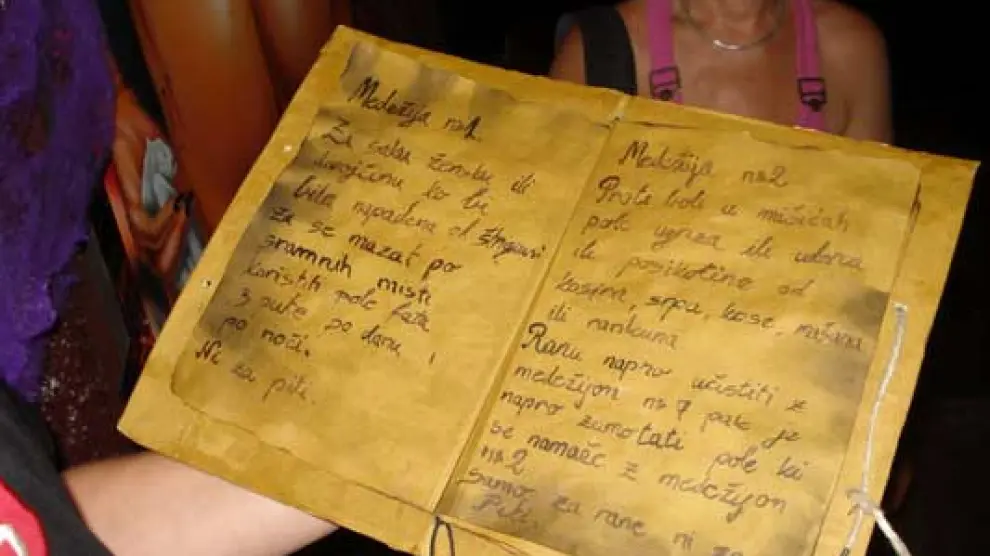 Medežija na 1.
Za saku žensku ili
divojčinu ko bi
bila napadena od Štriguni
Za se mazat po
sramnih misti
koristiti pole fata
3 pute po danu i
po noći.
Ni za piti.
Medežija na 2
Proti boli u mišićah
pole ugriza ili udorca
ili posikotine od
kosira, srpa, kose,
ili rankuna
Ranu napro učistiti z
medežijon na 7 pak je
napro zamotati pole ki
se namače z medežijon
na 2
Samo za rane ni za
Piti.